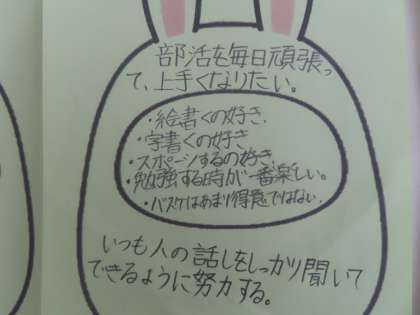 部活を毎日頑張っ
て、上手くなりたい。
・絵書くの好き.
・字書くの好き
・スポーツするの好き.
・勉強する時が一番楽しい。
・バスケはあまり得意ではない.
いつも人の話しをしっかり聞いて
できるように努力する。